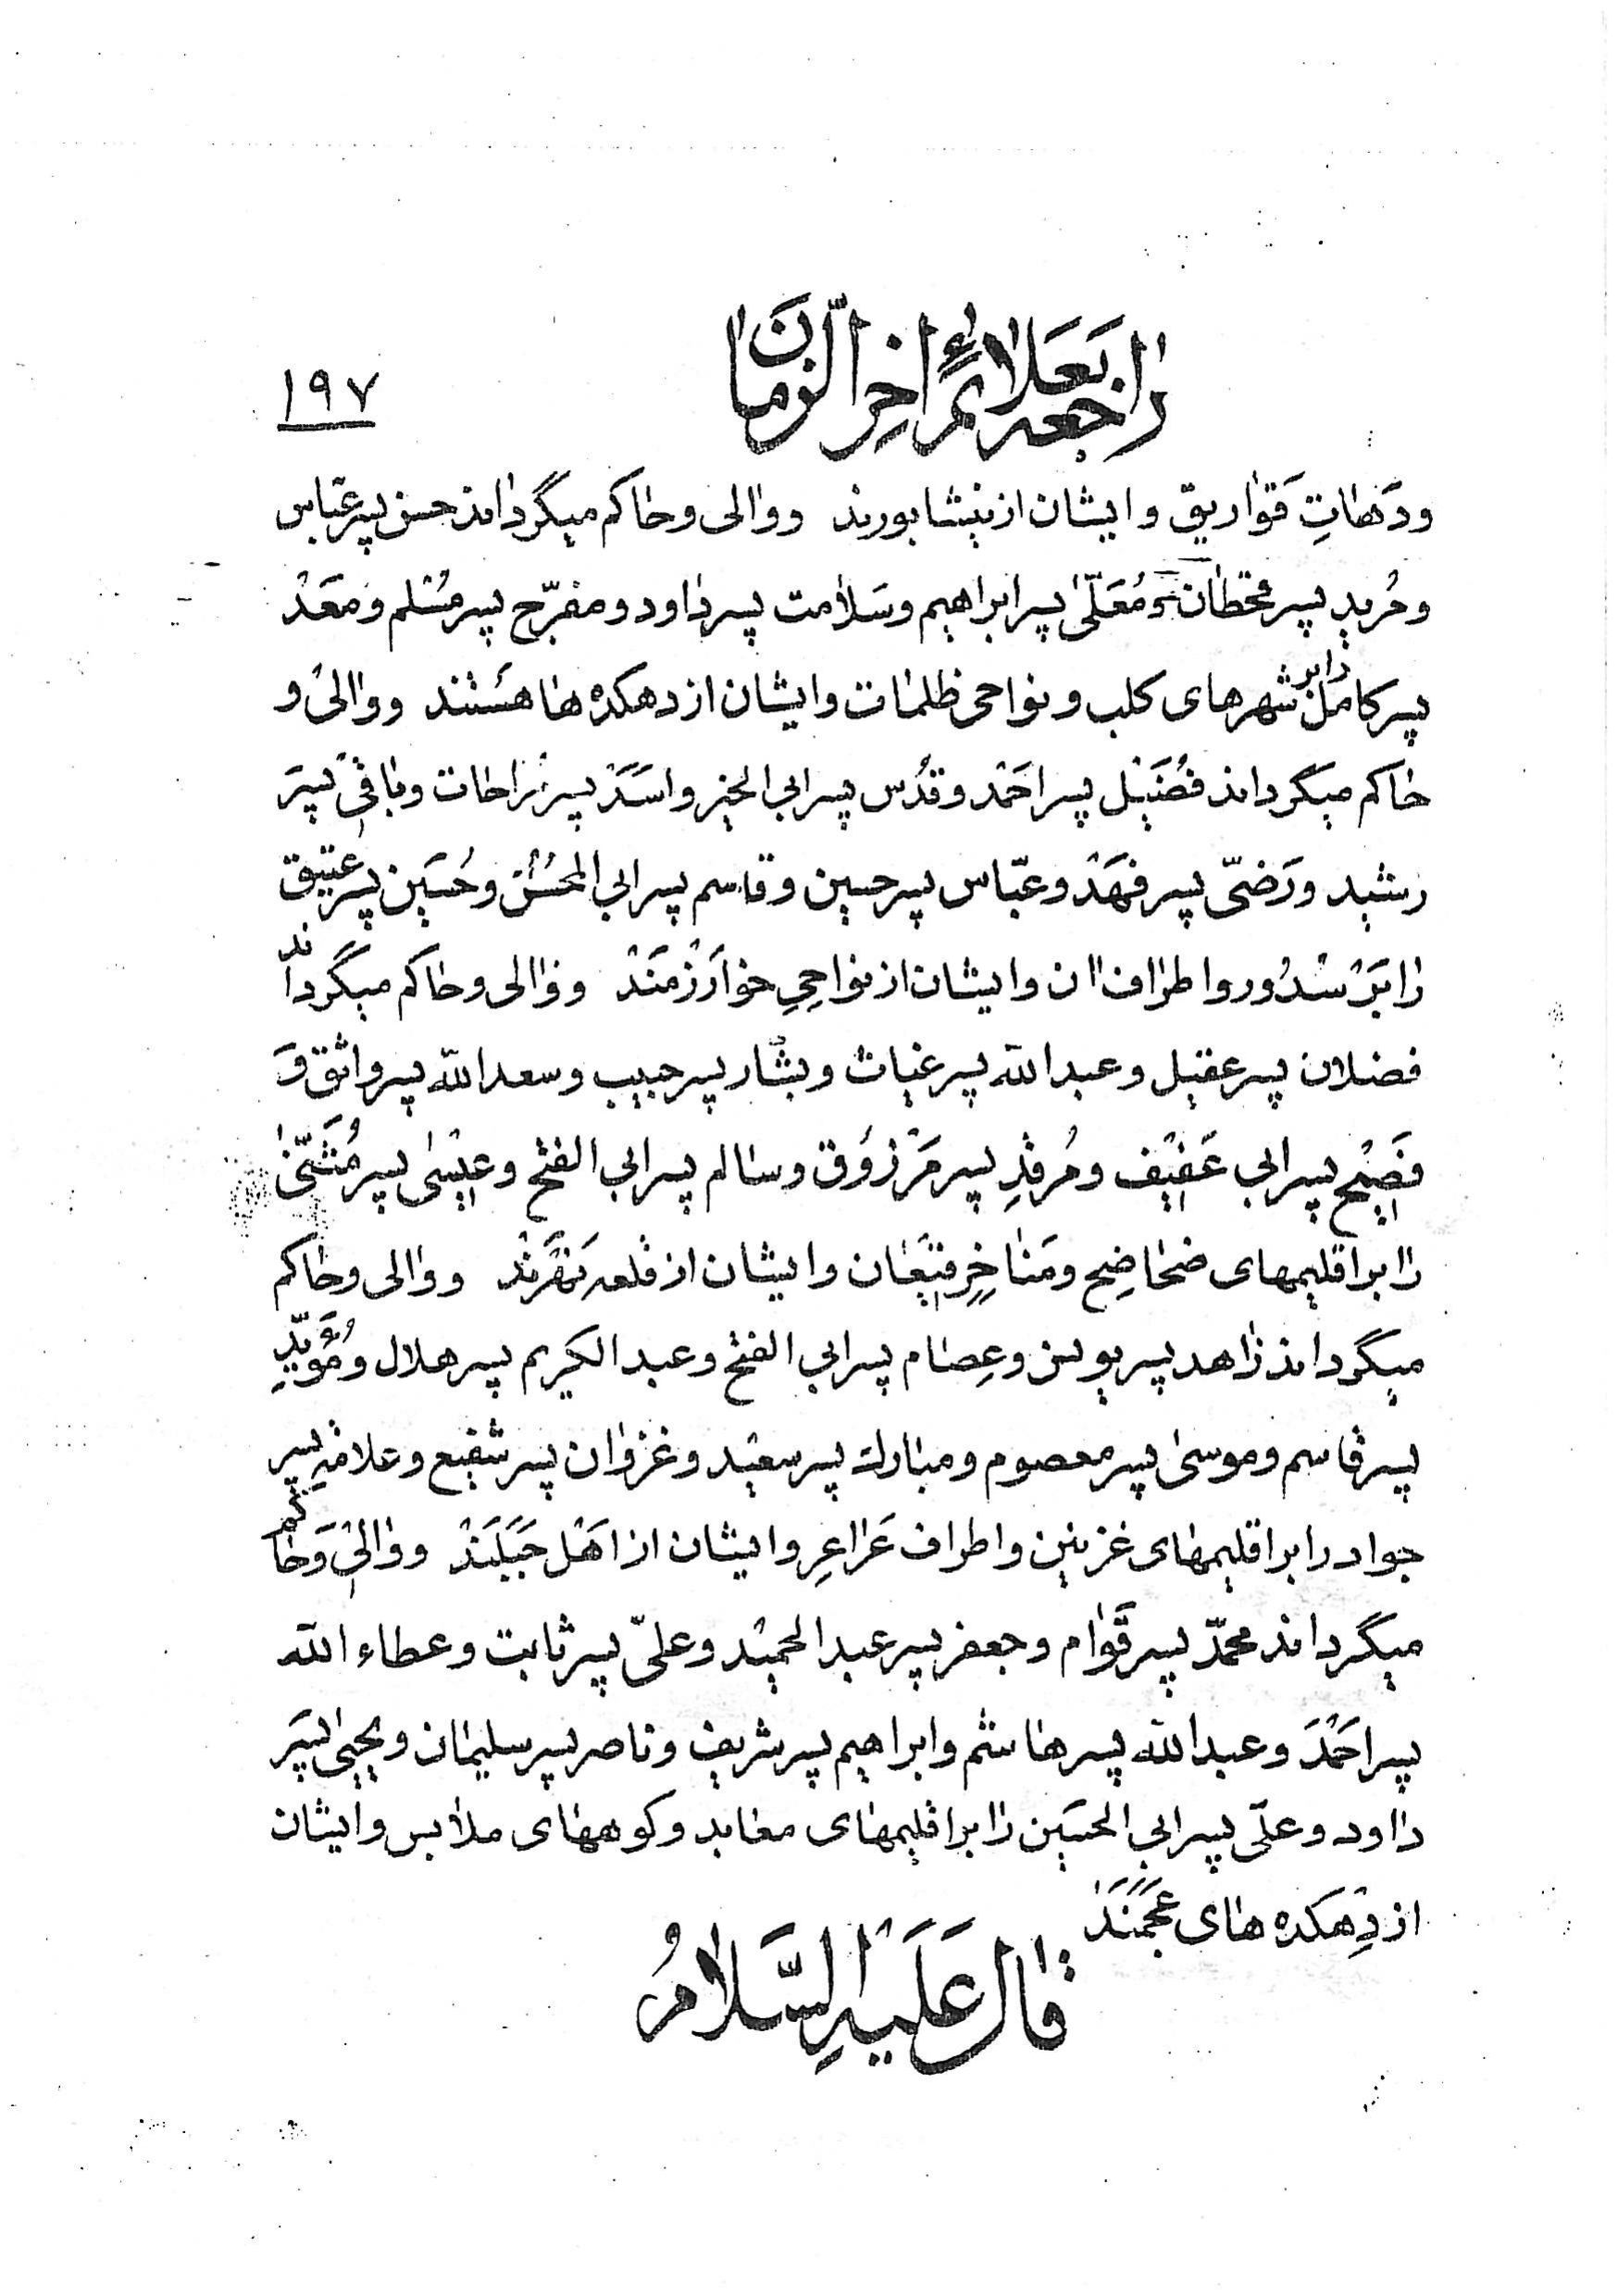 راجعه بعلائم اخر الزمان
۱۹۷
ودهاتِ قواریق و ایشان از نیشابورند ووالی وحاکم میگرداند حسن پسر عباس
ومُرید پسر قحطان ومُعَلّیٰ پسر ابراهیم وسَلامت پسر داود ومفرّج پسر مُسْلم ومَعَدْ
پسر کامل را بر شهرهای کلب ونواحی ظلمات وایشان از دهکده ها هستند ووالی و
حاکم میگرداند فُضَیْل پسر احمد و قدُس پسر ابی الخیر واسَد پسر مراحات وباقی پسَر
رشید ورَضیّ پسر فهَدْ وعبّاس پسر حسین وقاسم پسر ابی المحسن وحُسَین پسر عتیق
را بَر سُدُور واطراف ان وایشان از نواحیِ خوارَزْمَنَدْ ووالی وحاکم میگرداند
فضلان پسر عقیل وعبدالله پسر غیاث وبشار پسر حبیب وسعدالله پسر واثق وَ
فَصِیْح پسر ابی عَفیْف ومُرقدِ پسر مَرْزُوق وسالم پسر ابی الفتح وعیْسٰی پسر مُثَنّیٰ
را بر اقلیمهای ضحاضِح ومَناخِرِ قیعٰان وایشان از قلعه نَهْرَنْد ووالی وحاکم
میگرداند زاهد پسر یونس وعِصام پسر ابی الفتح وعبدالکریم پسر هلال ومُؤیّدِ
پسر قاسم وموسیٰ پسر معصوم ومبارك پسر سعید وغزوان پسر شفیع وعلامهِ پسر
جواد را بر اقلیمهای غزنین واطراف عَراعِر وایشان از اهْل جَبَلَنْد ووالی وَحاکم
میگرداند محمّد پسر قَوام وجعفر پسر عبدالحمید وعلیّ پسر ثابت وعطاء الله
پسر احمَدَ وعبدالله پسر هاشم وابراهیم پسر شریف وناصر پسر سلیمان ویحییٰ پسَر
داود وعلیّ پسر ابی الحسَین را بر اقلیمهای معابد وکوههای ملابس وایشان
از دِهکده های عَجَمَنَد
قٰال عَلَیهِ السَّلامُ